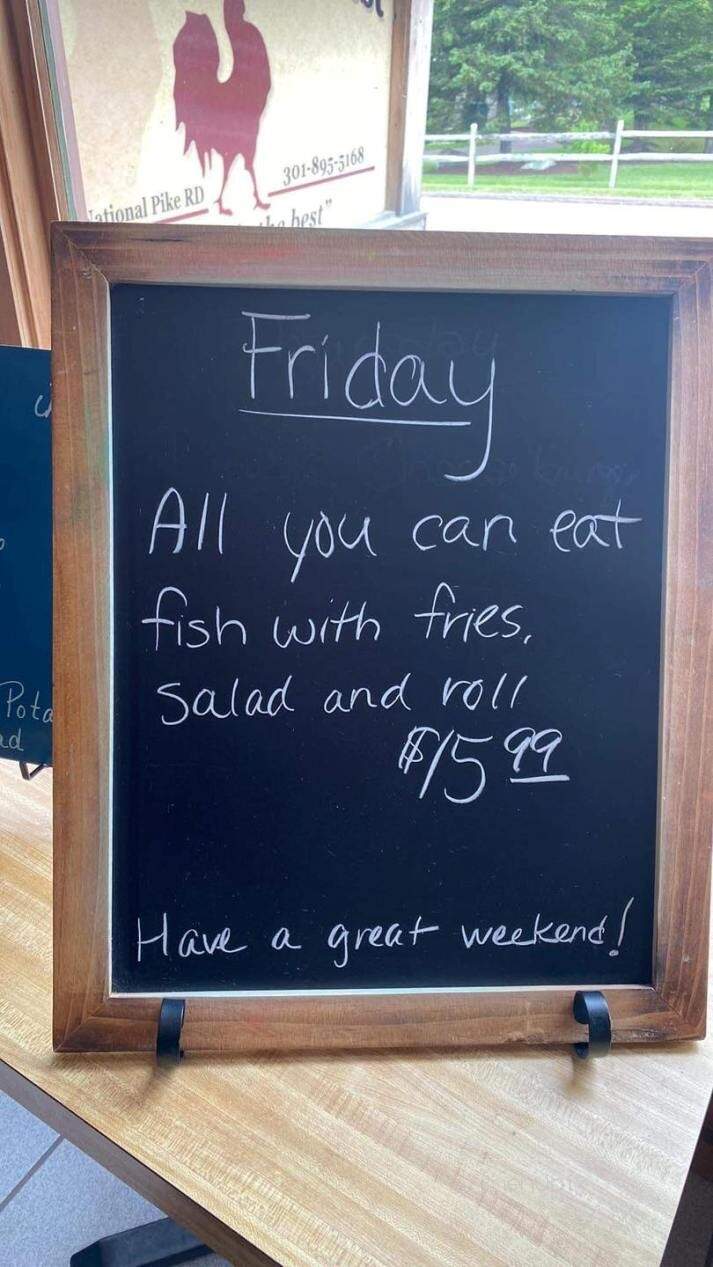 301-895-5168
National Pike RD
the best"
Friday
All you can eat
fish with fries,
salad and roll
$15 99
Have a great weekend!
Pota